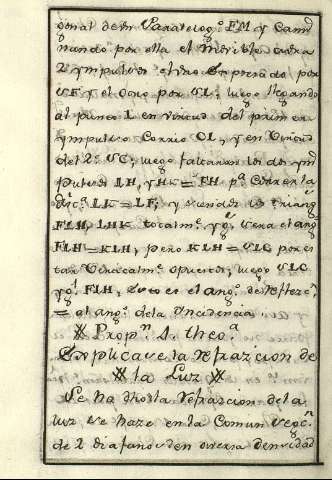 gonal de un Paralelogº. FM y cami
nando por ella el Movible, tendra
2 ympulsos el uno Expresado por
CF y el otro por CL; luego llegando
al punto L en virtud del primer
ympulso Corrio CL, y en virtud
del 2º. CC; luego faltaran los dos ym
pulsos LH, y HK = FH pª. Correr la
LK = LF; y siendo los triangs.
FLH, LHK totalmte. ygs. sera el angº
FLH = KLH, pero KLH = CLC por es
tar Verticalmte. opuestos; luego CLC
ygl. FLH, Esto es el angº. de reflexcn.
= al angº. de la Incidencia.
Propn. 1. theoª.
Explicase la refraxcion de
la Luz
Se ha dicho la refraxcion de la
luz se haze en la Comun Secn.
de 2 diafanos de diversa densidad